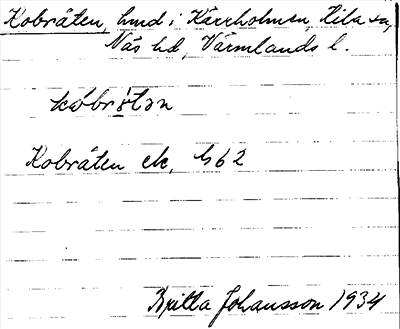 Kobråten, hmd i Kärrholmen, Eila sn,
Näs hd, Värmlands l.
kóbròtən
Kobråten ek, 462
Britta Johansson 1934